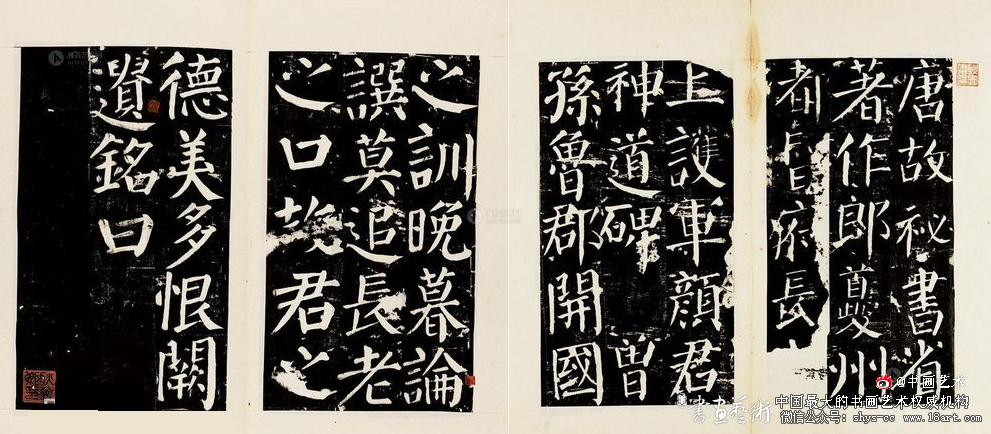 唐故祕書省
著作郎夔州
都督府長
上護軍顏君
神道碑 曾
孫魯郡開國
之訓晚暮論
譔莫追長老
之口故君之
德美多恨闕
遺銘曰
@书画艺术
中国最大的书画艺术权威机构
微信公众号: shys-oc www.18art.com
書画藝術